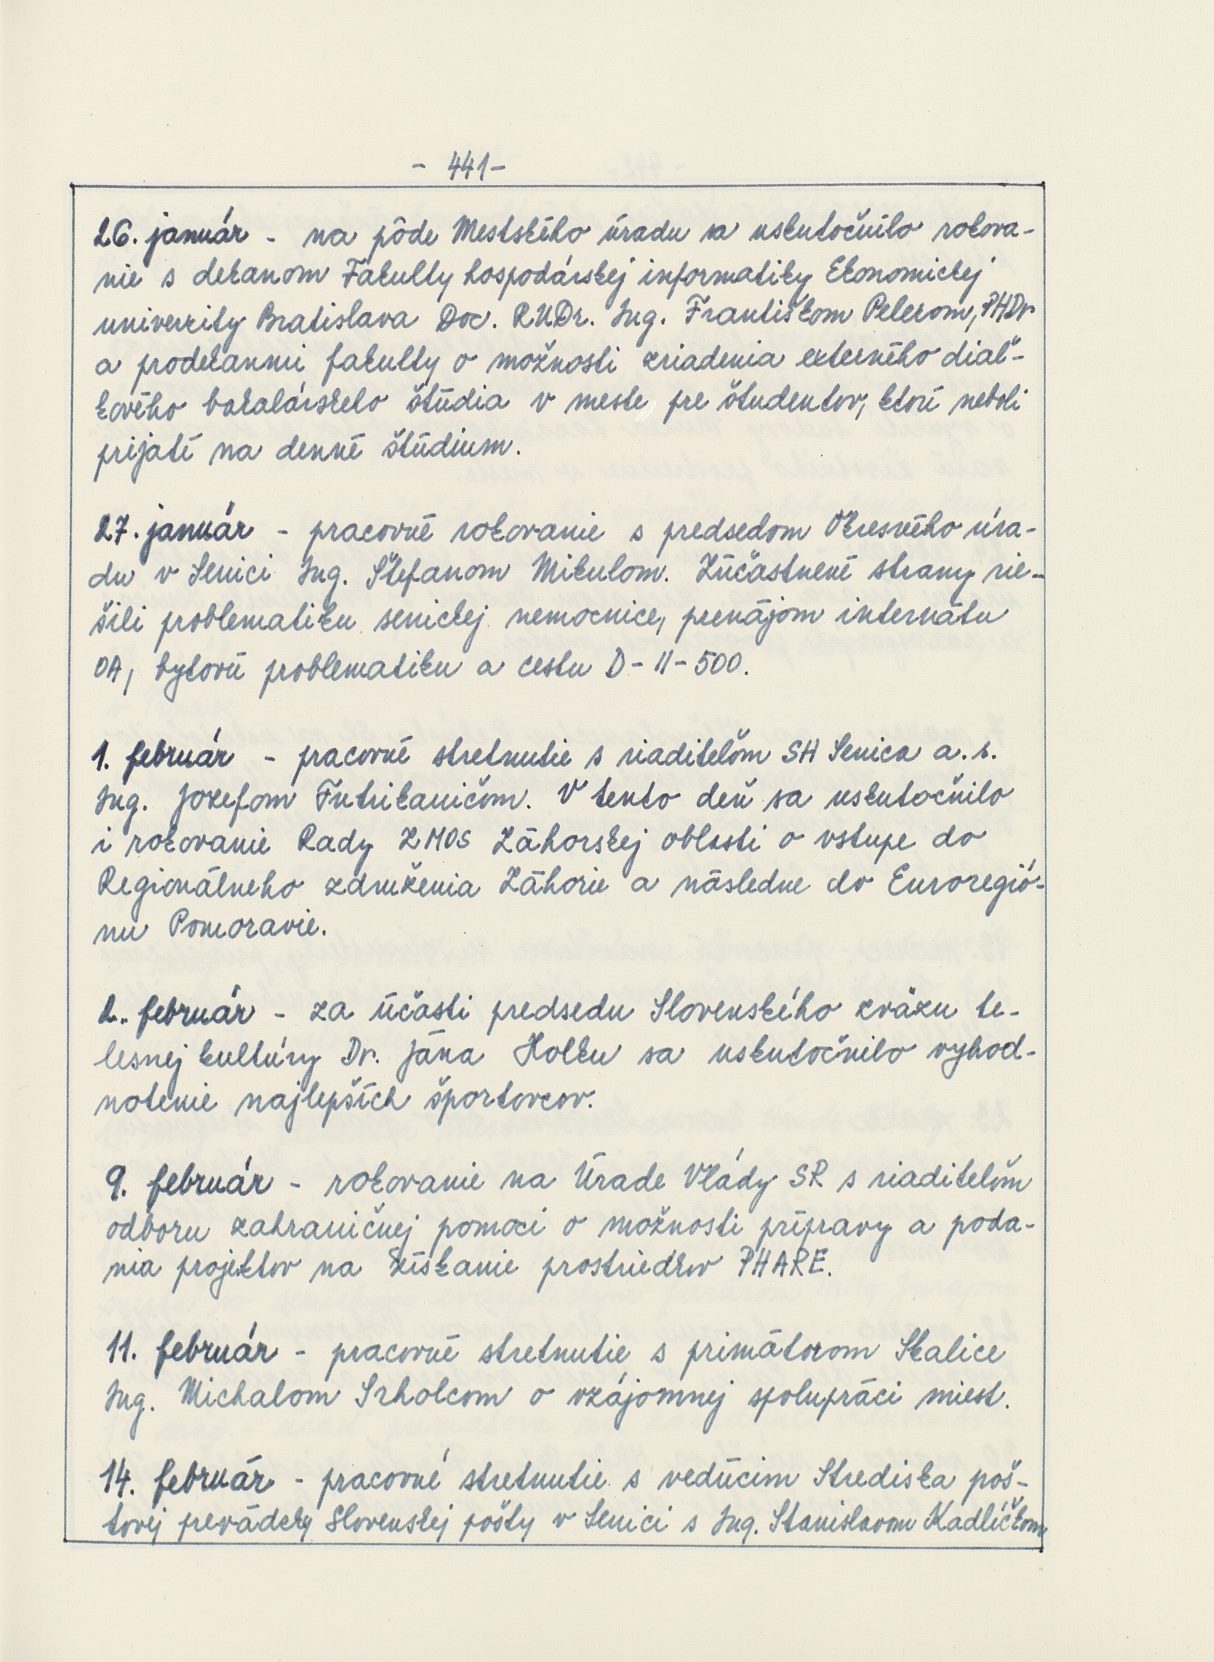 - 441 -
26. január - na pôde Mestského úradu sa uskutočnilo rokova-
nie s dekanom Fakulty hospodárskej informatiky Ekonomickej
univerzity Bratislava Doc. RUDr. Ing. Františkom Pelerom, PHDr
a prodekanmi fakulty o možnosti zriadenia externého diaľ-
kového bakalárskeho štúdia v meste pre študentov, ktorí neboli
prijatí na denné štúdium.
27. január - pracovné rokovanie s predsedom Okresného úra-
du v Senici Ing. Štefanom Mikulom. Zúčastnené strany rie-
šili problematiku senickej nemocnice, prenájom internátu
OA, bytovú problematiku a cestu D-II-500.
1. február - pracovné stretnutie s riaditeľom SH Senica a.s.
Ing. Jozefom Futrikaničom. V tento deň sa uskutočnilo
i rokovanie Rady ZMOS Záhorskej oblasti o vstupe do
Regionálneho združenia Záhorie a následne do Euroregió-
nu Pomoravie.
2. február - za účasti predsedu Slovenského zväzu te-
lesnej kultúry Dr. Jána Holku sa uskutočnilo vyhod-
notenie najlepších športovcov.
9. február - rokovanie na Úrade Vlády SR s riaditeľom
odboru zahraničnej pomoci o možnosti prípravy a poda-
nia projektov na získanie prostriedkov PHARE.
11. február - pracovné stretnutie s primátorom Skalice
Ing. Michalom Srholcom o vzájomnej spolupráci miest.
14. február - pracovné stretnutie s vedúcim Strediska poš-
tovej prevádzky Slovenskej pošty v Senici s Ing. Stanislavom Kadlíčkom